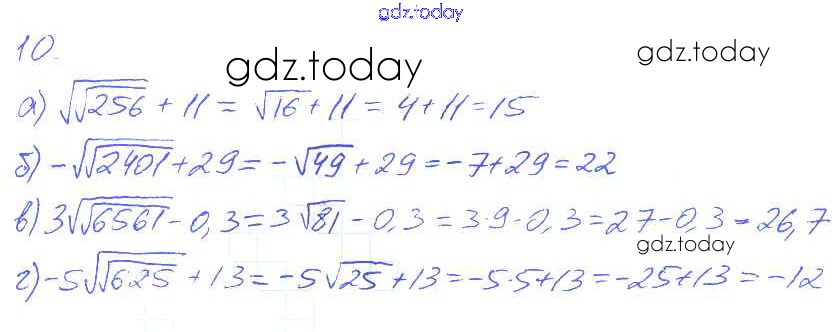 gdz.today
10.
gdz.today
gdz.today
а) √√256 + 11 = √16 + 11 = 4 + 11 = 15
б) -√√2401 + 29 = -√49 + 29 = -7 + 29 = 22
в) 3√√6561 - 0,3 = 3√81 - 0,3 = 3·9 - 0,3 = 27 - 0,3 = 26,7
gdz.today
г) -5√√625 + 13 = -5√25 + 13 = -5·5 + 13 = -25 + 13 = -12